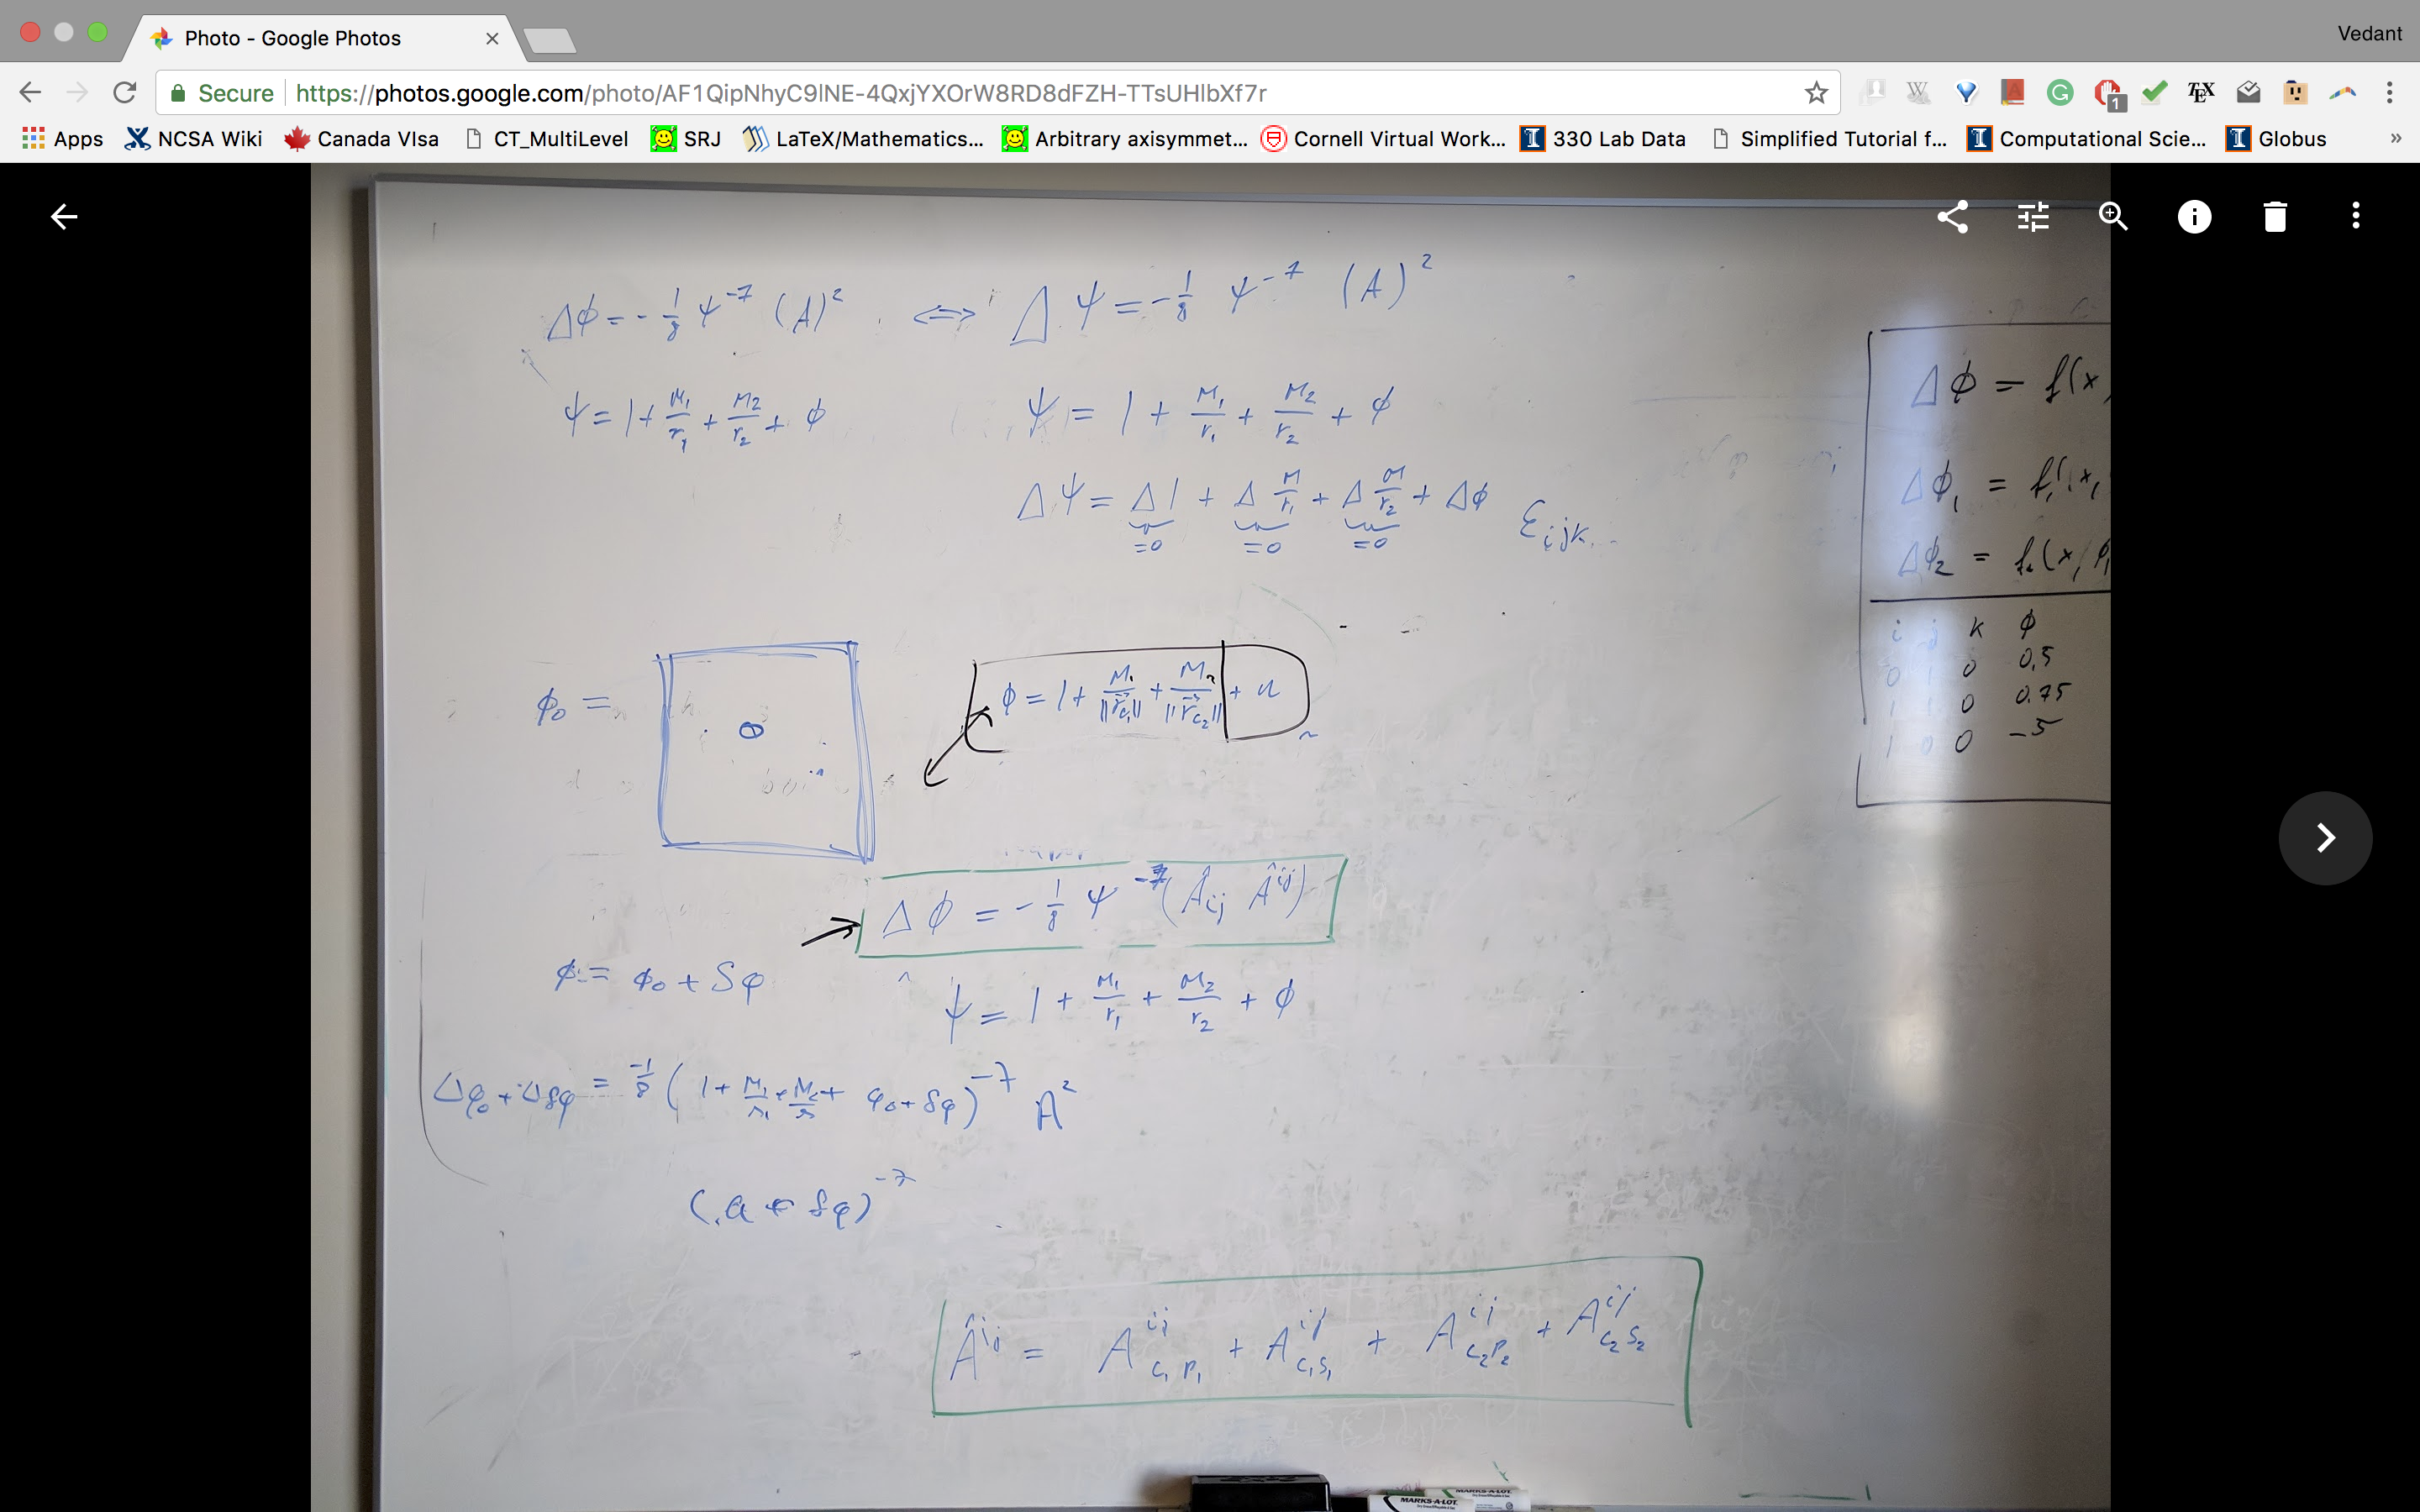 Photo - Google Photos
Vedant
Secure https://photos.google.com/photo/AF1QipNhyC9INE-4QxjYXOrW8RD8dFZH-TTsUHlbXf7r
Apps NCSA Wiki Canada VIsa CT_MultiLevel SRJ LaTeX/Mathematics... Arbitrary axisymmet... Cornell Virtual Work... 330 Lab Data Simplified Tutorial f... Computational Scie... Globus »
Δϕ = -1/8 ψ^-7 (A)^2 <=> Δψ = -1/8 ψ^-7 (A)^2
ψ = 1 + M1/r1 + M2/r2 + ϕ ψ = 1 + M1/r1 + M2/r2 + ϕ
Δψ = Δ1 + Δ M/r1 + Δ M/r2 + Δϕ Ɛijk
=0 =0 =0
ϕ0 =
ϕ = 1 + M1/||r⃗c1|| + M2/||r⃗c2|| + u
Δϕ = -1/8 ψ^-7 (Âij Â^ij)
ϕ = ϕ0 + δφ
ψ = 1 + M1/r1 + M2/r2 + ϕ
Δφ0 + Δδφ = -1/8 (1 + M1/r1 + M2/r2 + φ0 + δφ)^-7 A^2
(a + δφ)^-7
Â^ij = A^ij c1P1 + A^ij c1s1 + A^ij c2P2 + A^ij c2s2
Δϕ = f(x,
Δϕ1 = f1(x,
Δϕ2 = f2(x, ϕ1
i j k ϕ
0 1 0 0,5
1 1 0 0.75
1 0 0 -5
MARKS-A-LOT
MARKS-A-LOT